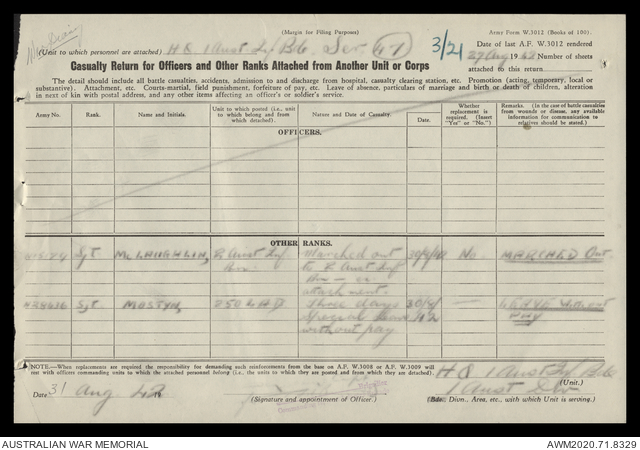 (Margin for Filing Purposes)
Army Form W.3012 (Books of 100).
(Unit to which personnel are attached) H Q 1 Aust Inf Bde Ser 47
3/21
Date of last A.F. W.3012 rendered
29 Aug 1942 Number of sheets
attached to this return
Casualty Return for Officers and Other Ranks Attached from Another Unit or Corps
The detail should include all battle casualties, accidents, admission to and discharge from hospital, casualty clearing station, etc. Promotion (acting, temporary, local or
substantive). Attachment, etc. Courts-martial, field punishment, forfeiture of pay, etc. Leave of absence, particulars of marriage and birth or death of children, alteration
in next of kin with postal address, and any other items affecting an officer's or soldier's service.
Army No. Rank. Name and Initials. Unit to which posted (i.e., unit to which belong and from which detached). Nature and Date of Casualty. Date. Whether replacement is required. (Insert "Yes" or "No.") Remarks. (In the case of battle casualties from wounds or disease, any available information for communication to relatives should be stated.)
OFFICERS.
OTHER RANKS.
Sgt McLAUGHLIN, 2 Aust Inf Marched out 30/8/42 No. MARCHED Out
Bn. to 2 Aust Inf
Bn
attachment.
Sgt. MOSTYN, Three days 30/8/ — LEAVE Without
Special Leave /42 Pay
without pay
NOTE.—When replacements are required the responsibility for demanding such reinforcements from the base on A.F. W.3008 or A.F. W.3009 will
rest with officers commanding units to which the attached personnel belong (i.e., the units to which they are posted and from which they are detached).
H Q 1 Aust Inf Bde
(Unit.)
Date 31 Aug 42
1 Aust Div
(Signature and appointment of Officer.)
(Bde. Divn., Area, etc., with which Unit is serving.)
AUSTRALIAN WAR MEMORIAL
AWM2020.71.8329